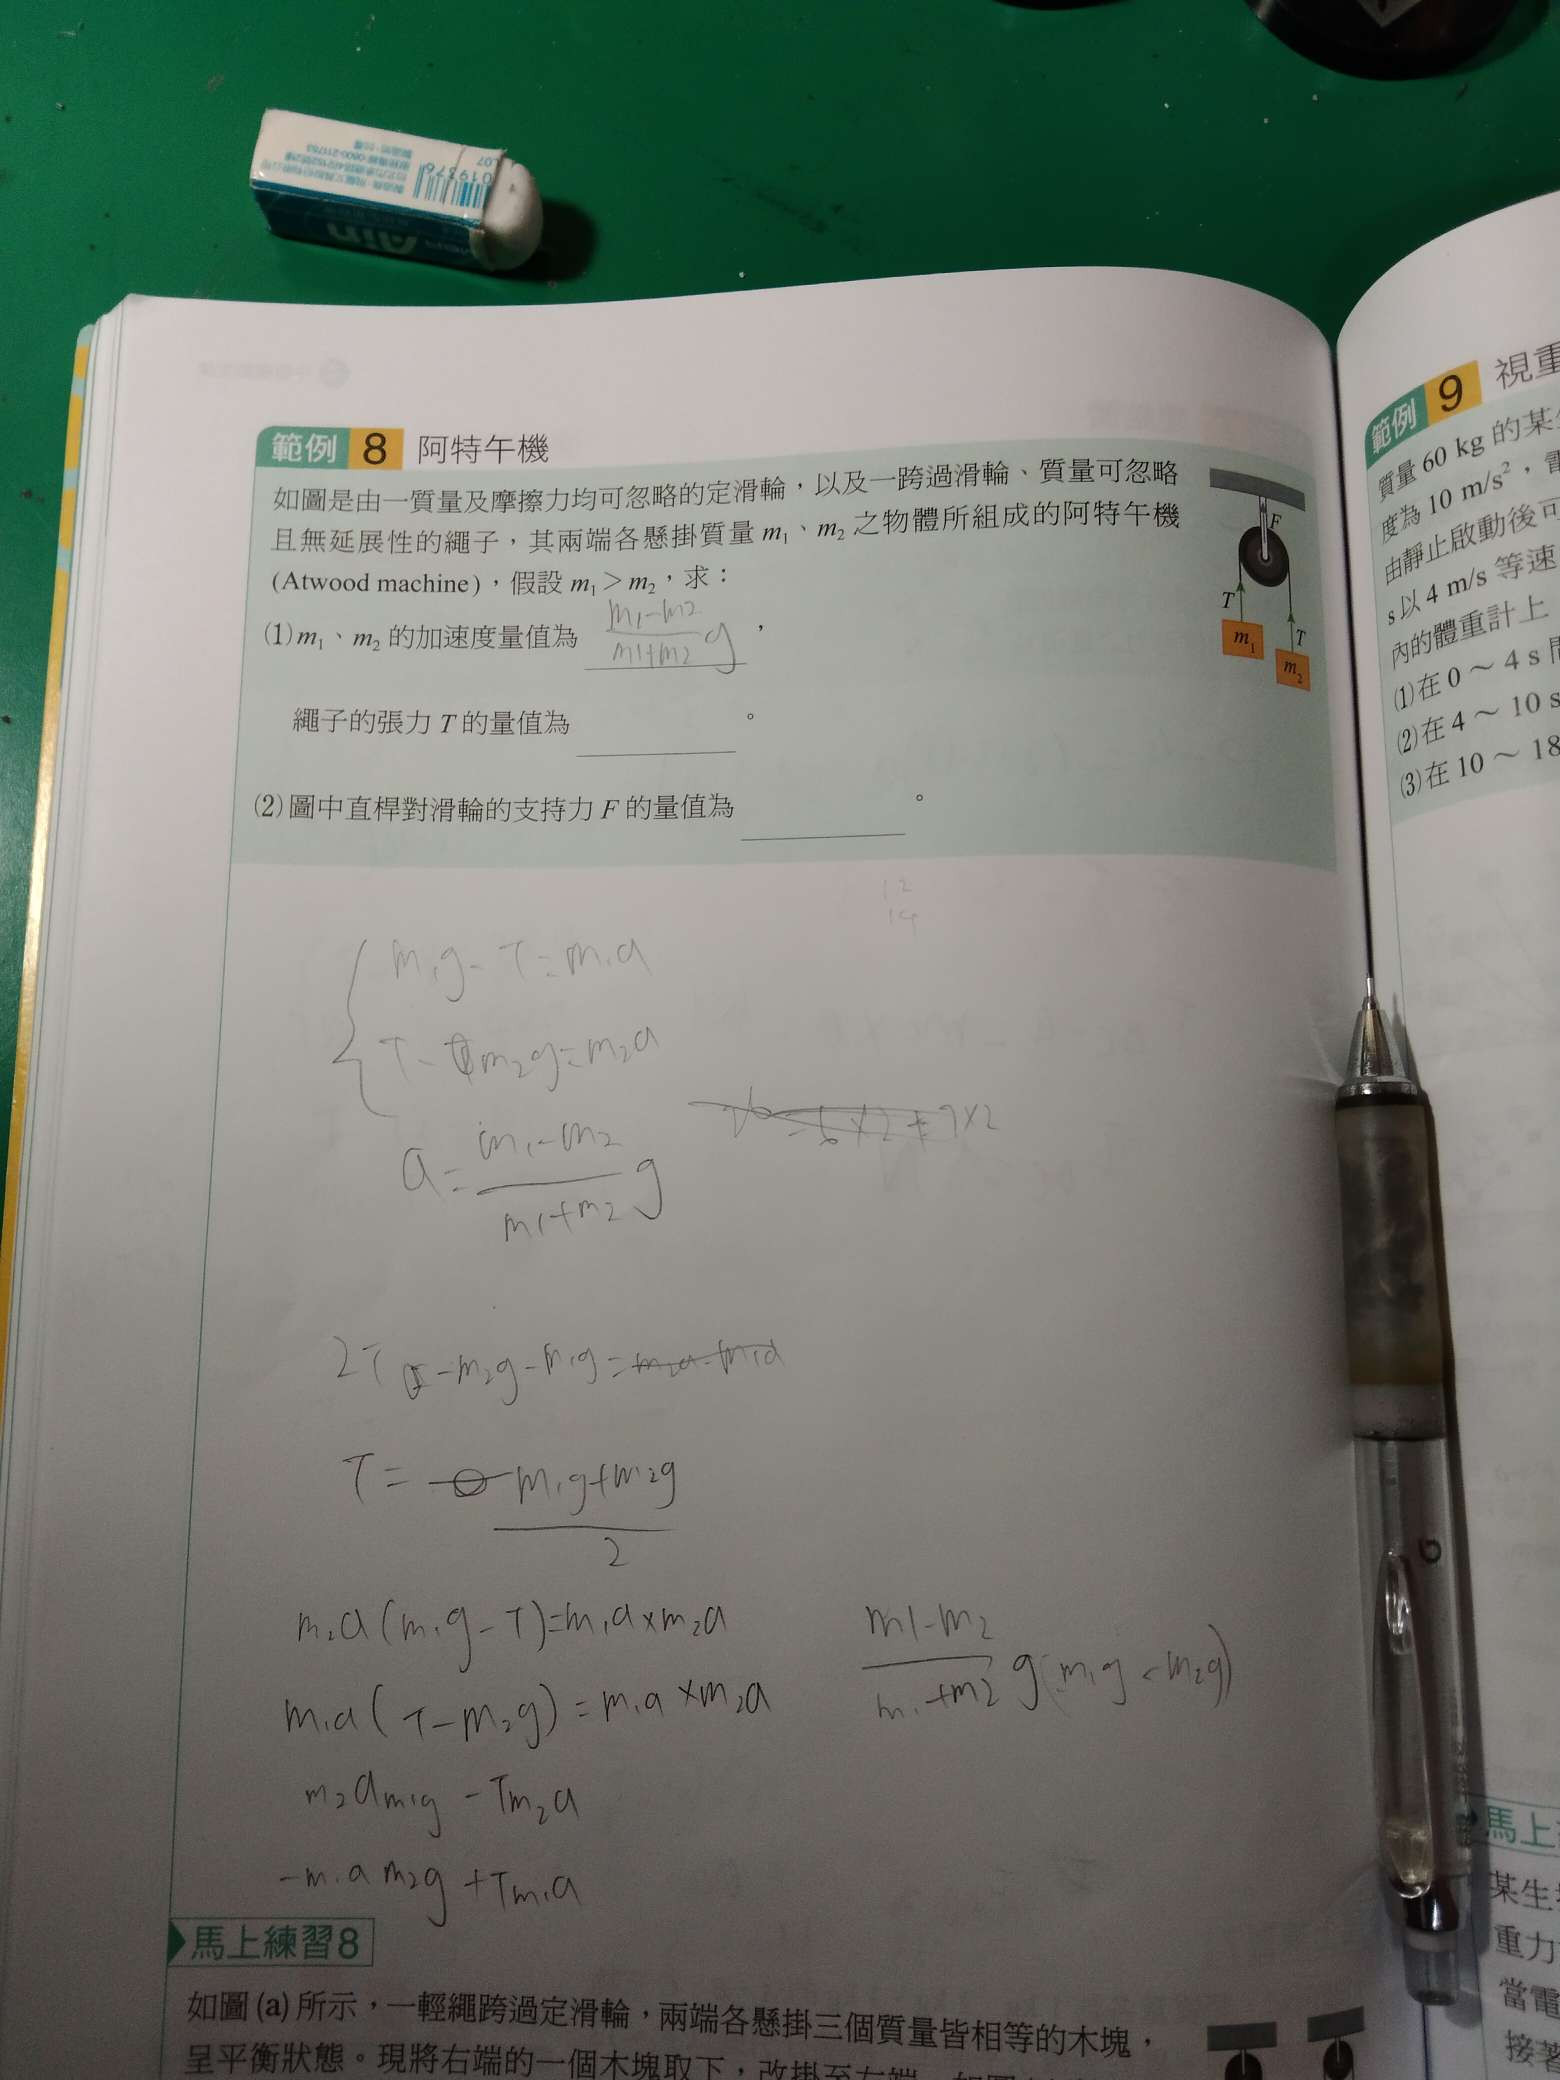 019376
L07
Ain
範例 8 阿特午機
如圖是由一質量及摩擦力均可忽略的定滑輪，以及一跨過滑輪、質量可忽略
且無延展性的繩子，其兩端各懸掛質量 m₁、m₂ 之物體所組成的阿特午機
(Atwood machine)，假設 m₁ > m₂，求：
(1) m₁、m₂ 的加速度量值為 (m1-m2)/(m1+m2) g ，
繩子的張力 T 的量值為 ______ 。
(2) 圖中直桿對滑輪的支持力 F 的量值為 ______ 。
F
T
T
m₁
m₂
12
14
m₁g - T = m₁a
T - m₂g = m₂a
a = (m₁-m₂)/(m1+m2) g
= 6×2 + 7×2
2T - m₂g - m₁g = m₂a - m₁a
T = (m₁g+m₂g)/2
m₂a(m₁g - T) = m₁a×m₂a
m₁a(T - m₂g) = m₁a×m₂a
(m1-m2)/(m₁+m2) g
m₂am₁g - Tm₂a
-m₁am₂g + Tm₁a
馬上練習8
如圖 (a) 所示，一輕繩跨過定滑輪，兩端各懸掛三個質量皆相等的木塊，
呈平衡狀態。現將右端的一個木塊取下，改掛至左端，如圖
範例 9 視重
質量 60 kg 的某
度為 10 m/s²，電
由靜止啟動後可
s 以 4 m/s 等速
內的體重計上
(1) 在 0 ～ 4 s 間
(2) 在 4 ～ 10 s
(3) 在 10 ～ 18
馬上
某生
重力
當電
接著